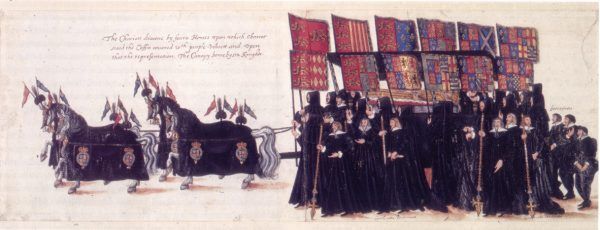 The Chariott drawne by foure Horses upon which Charret
stood the Coffin covered wth purple Velvett and upon
that the representation, The Canapy borne by six Knights